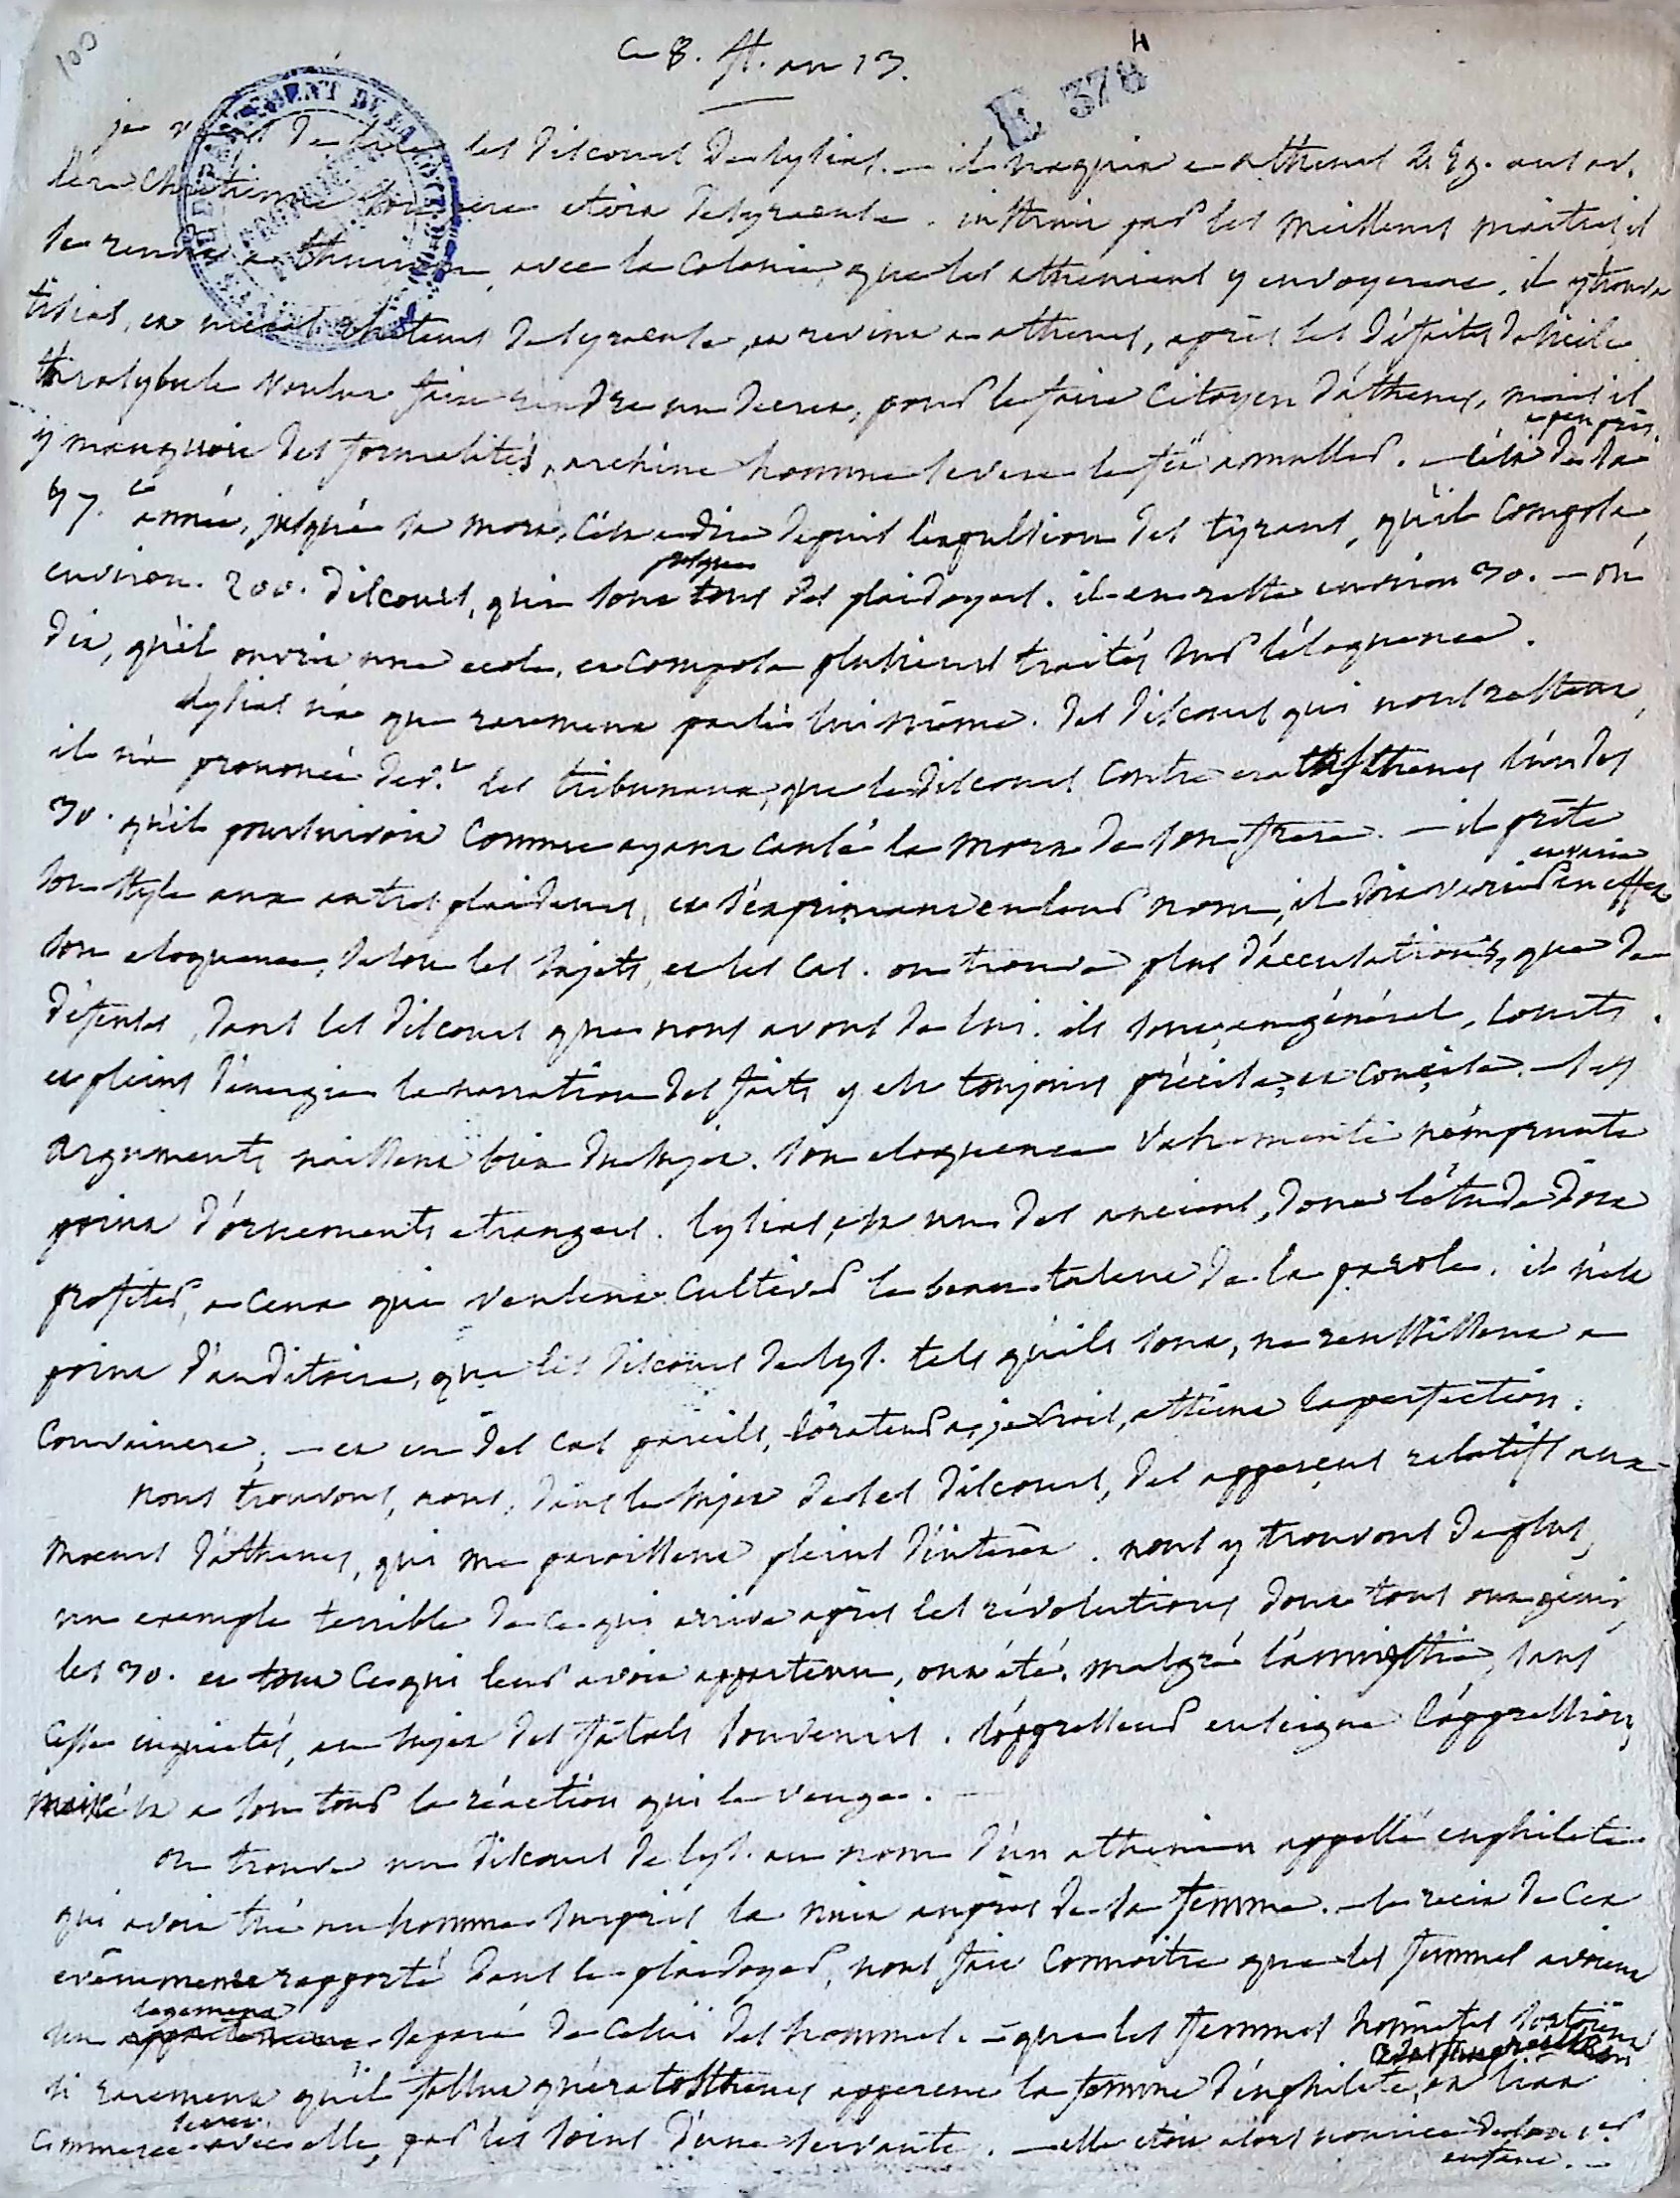 100
Ce 8. fl. an 13.
E 378
H
je viens de lire les discours de lysias. — il naquit a athenes 459. ans av.
l'ere chretienne son pere etoit de syracuse. instruit par les meilleurs maitres, il
se rendit a thurium, avec la colonie, que les atheniens y envoyerent. il y trouva
tisias, et nicias rheteurs de syracuse, et revint a athenes, après les défaites de sicile
thrasybule voulut faire rendre un decret, pour le faire citoyen d'athenes, mais il
y manquoit des formalités, archine homme severe le fit annuller. — c'est de sa
a peu près
47.e année, jusqu'à sa mort, c'est a dire depuis l'expulsion des tyrans, qu'il composa,
environ 200. discours, qui sont presque tous des plaidoyers. il en reste environ 30. — on
dit, qu'il ouvrit une ecole, et composa plusieurs traités sur l'éloquence.
lysias n'a que rarement parlé lui même. des discours qui nous restent,
il n'a prononcé dev.t les tribunaux, que le discours contre eratosthenes l'un des
30. qu'il poursuivoit comme ayant causé la mort de son frere. — il prête
son style aux autres plaideurs, et s'exprimant en leur nom, il doit varier et varie en effet
son eloquence, selon les sujets, et les cas. on trouve plus d'accusations, que de
défenses, dans les discours que nous avons de lui. ils sont, en général, courts,
et pleins d'énergie la narration des faits y est toujours précise, et concise. — les
arguments naissent bien du sujet. son eloquence vehemente n'emprunte
point d'ornements etrangers. lysias, est un des anciens, dont l'étude doit
profiter, a ceux qui veulent cultiver le beau talent de la parole. il n'est
point d'auditoire, que les discours de lys. tels qu'ils sont, ne reussissent a
convaincre; — et en des cas pareils, l'orateur a, je crois, atteint la perfection.
nous trouvons, nous, dans le sujet de ses discours, des apperçus relatifs aux
moeurs d'athenes, qui me paroissent pleins d'intérêt. nous y trouvons de plus,
un exemple terrible de ce qui arrive après les révolutions dont tous ont gémi,
les 30. et tout ce qui leur avoit appartenu, ont été, malgré l'amnistie, sans
cesse inquietés, au sujet des fatals souvenirs. l'aggresseur enseigne l'aggression,
mais c'est a son tour la réaction qui le venge. —
on trouve un discours de lys. au nom d'un athenien appellé euphilete
qui avoit tué un homme surpris la nuit auprès de sa femme. — le recit de cet
evénement rapporté dans le plaidoyer, nous fait connoître que les femmes avoient
un logement separé de celui des hommes. — que les femmes honnêtes sortoient
si rarement qu'il fallut qu'eratosthenes apperçut la femme d'euphilete, et liat
commerce secret avec elle, par les soins d'une servante. — elle etoit alors nourrice de son 1.er
enfant. —